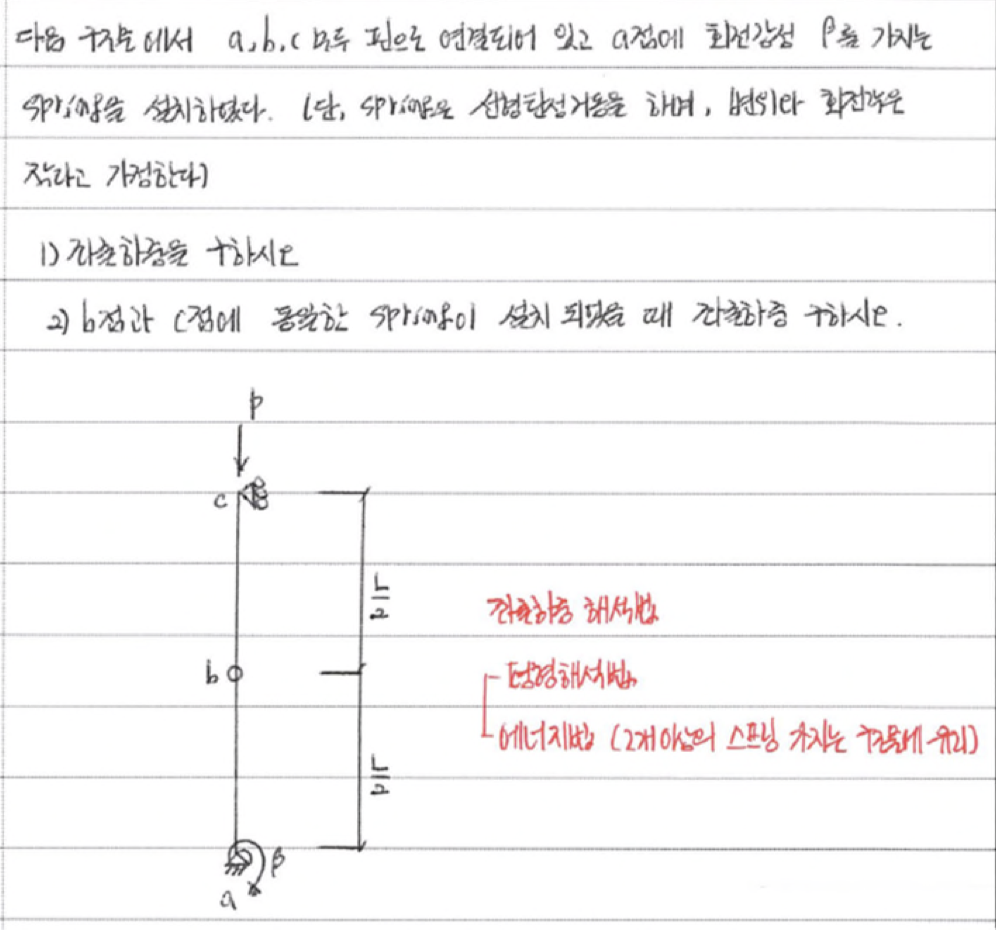 다음 구조물에서 a, b, c 모두 핀으로 연결되어 있고 a점에 회전강성 β를 가지는
spring을 설치하였다. (단, spring은 선형탄성거동을 하며, 변위와 회전각은
작다고 가정한다)
1) 좌굴하중을 구하시오
2) b점과 c점에 동일한 spring이 설치 되었을 때 좌굴하중 구하시오.
P
c
L/2
좌굴하중 해석법
b
평형해석법
에너지법 (2개이상의 스프링 가지는 구조물에 유리)
L/2
β
a